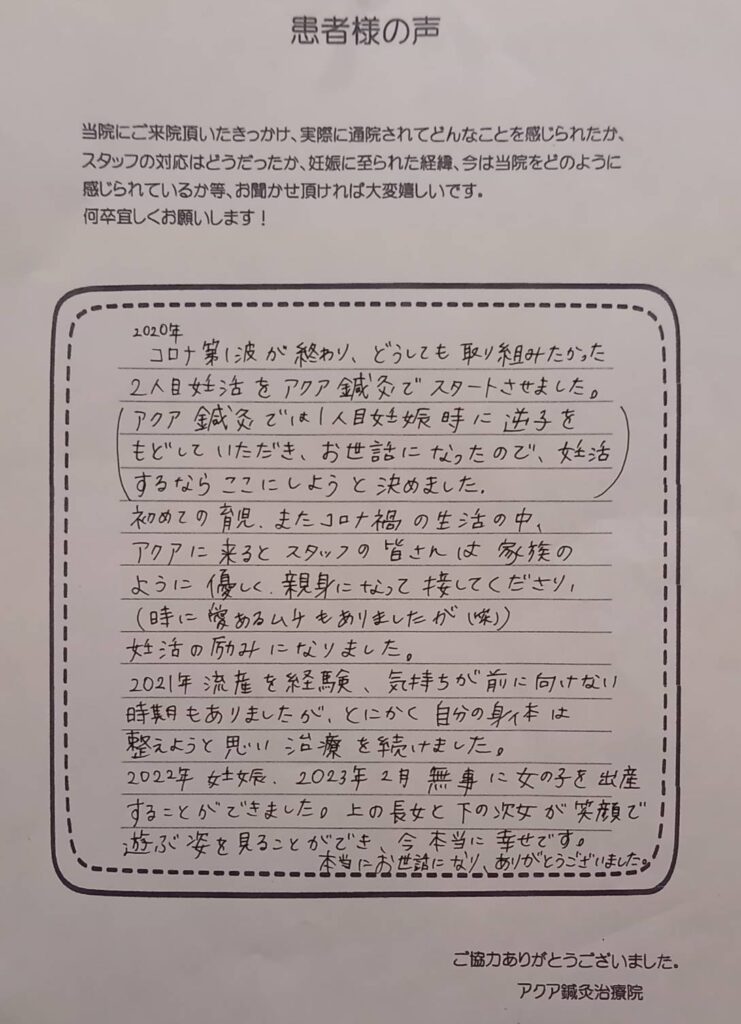 患者様の声
当院にご来院頂いたきっかけ、実際に通院されてどんなことを感じられたか、
スタッフの対応はどうだったか、妊娠に至られた経緯、今は当院をどのように
感じられているか等、お聞かせ頂ければ大変嬉しいです。
何卒宜しくお願いします！
2020年
コロナ第1波が終わり、どうしても取り組みたかった
2人目妊活をアクア鍼灸でスタートさせました。
(アクア鍼灸では1人目妊娠時に逆子を
もどしていただき、お世話になったので、妊活
するならここにしようと決めました.)
初めての育児、またコロナ禍の生活の中、
アクアに来るとスタッフの皆さんは家族の
ように優しく、親身になって接してくださり、
(時に愛あるムチもありましたが(笑))
妊活の励みになりました。
2021年流産を経験、気持ちが前に向けない
時期もありましたが、とにかく自分の身体は
整えようと思い治療を続けました。
2022年妊娠、2023年2月無事に女の子を出産
することができました。上の長女と下の次女が笑顔で
遊ぶ姿を見ることができ、今本当に幸せです。
本当にお世話になり、ありがとうございました。
ご協力ありがとうございました。
アクア鍼灸治療院